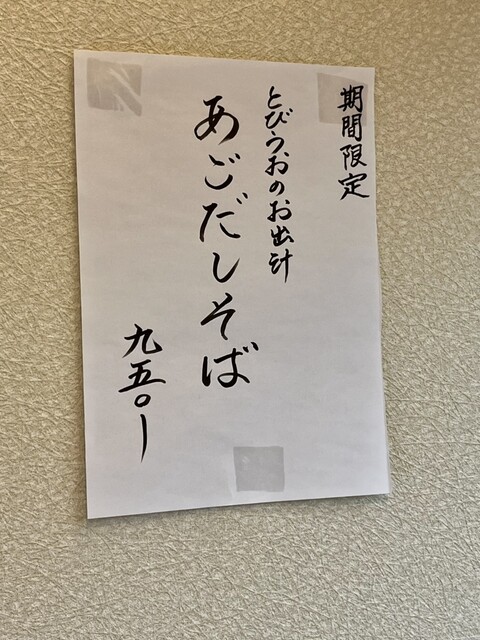 期間限定
とびうおのお出汁
あごだしそば
九五〇ー